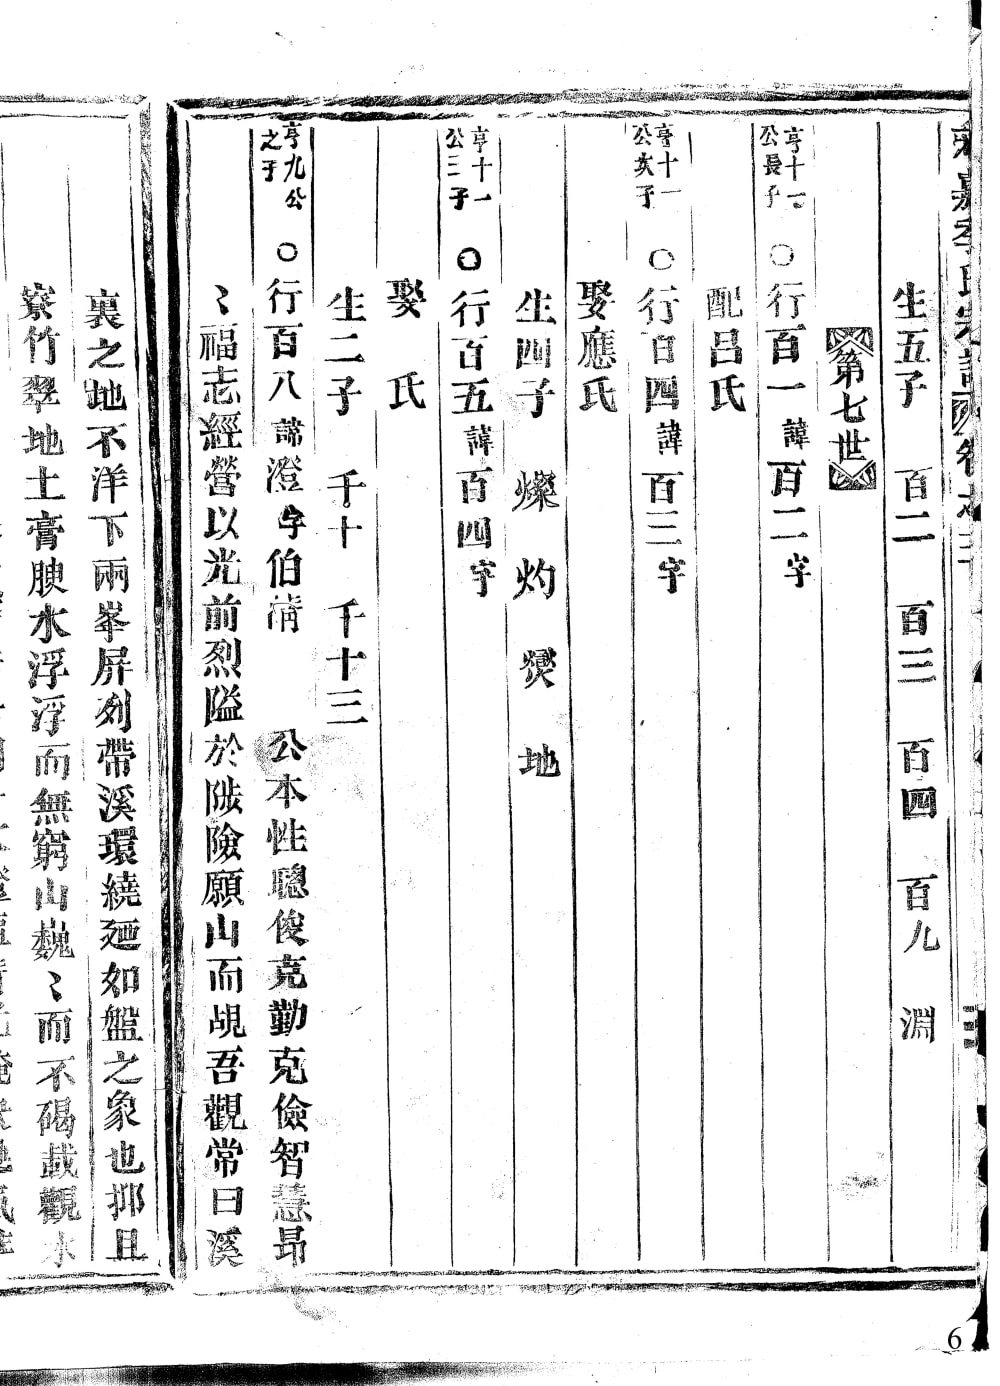 生五子 百二 百三 百四 百九 淵
第七世
亨十一公長子 ○行百一 諱百二 字
配呂氏
亨十一公次子 ○行百四 諱百三 字
娶應氏
生四子 燦 灼 燠 地
亨十一公三子 ○行百五 諱百四 字
娶 氏
生二子 千十 千十三
亨九公之子 ○行百八 諱澄 字伯清 公本性聰俊克勤克儉智慧昂
〻福志經營以光前烈隘於陂險願山而覘吾觀常曰溪
裏之地不洋下兩峯屏列帶溪環繞廻如盤之象也抑且
寮竹翠地土膏腴水浮浮而無窮山巍〻而不碣哉觀水
6